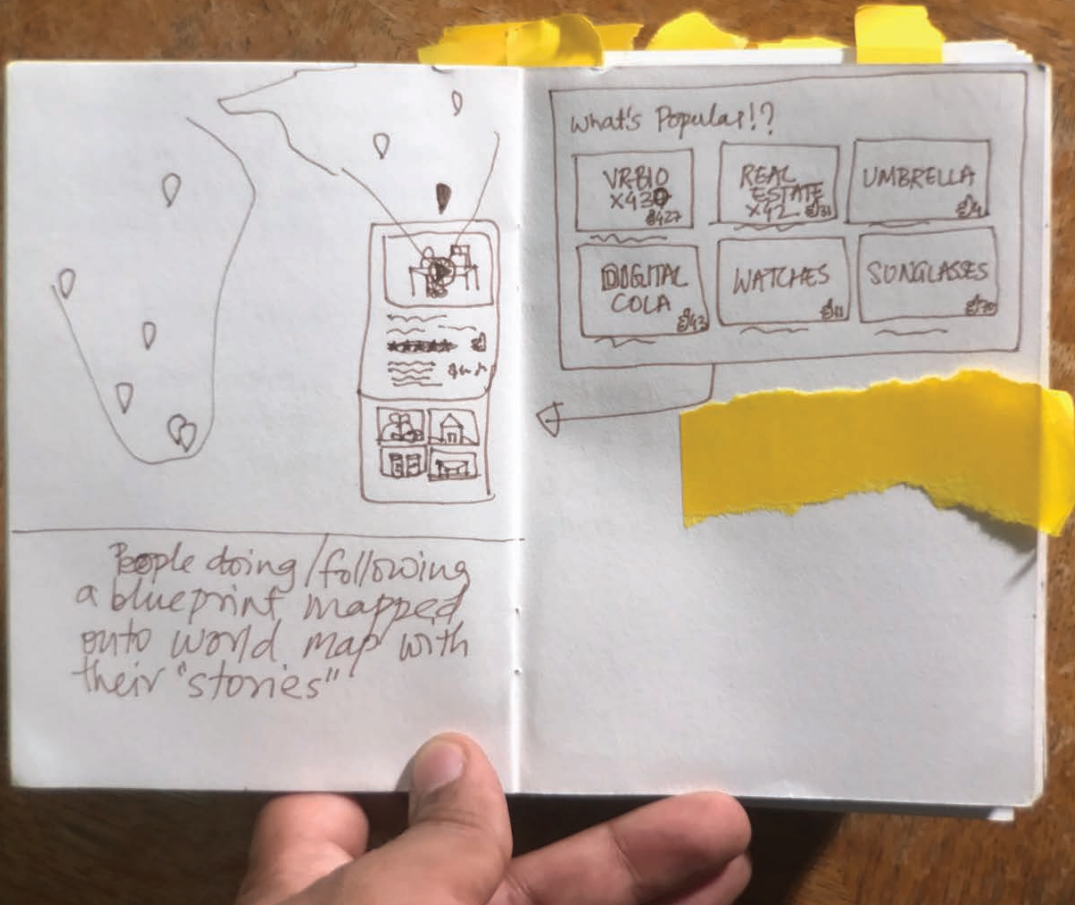 People doing/following
a blueprint mapped
onto world map with
their "stories"
What's Popular!?
VR-BIO
X430
REAL
ESTATE
X42
UMBRELLA
DIGITAL
COLA
WATCHES
SUNGLASSES